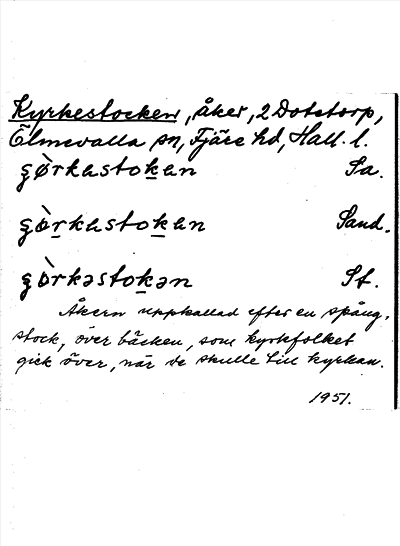 Kyrkestocken, åker, 2 Dotetorp,
Ölmevalla sn, Fjäre hd, Hall. l.
Sa.
Sand.
St.
Åkern uppkallad efter en spång,
stock, över bäcken, som kyrkfolket
gick över, när de skulle till kyrkan.
1951.